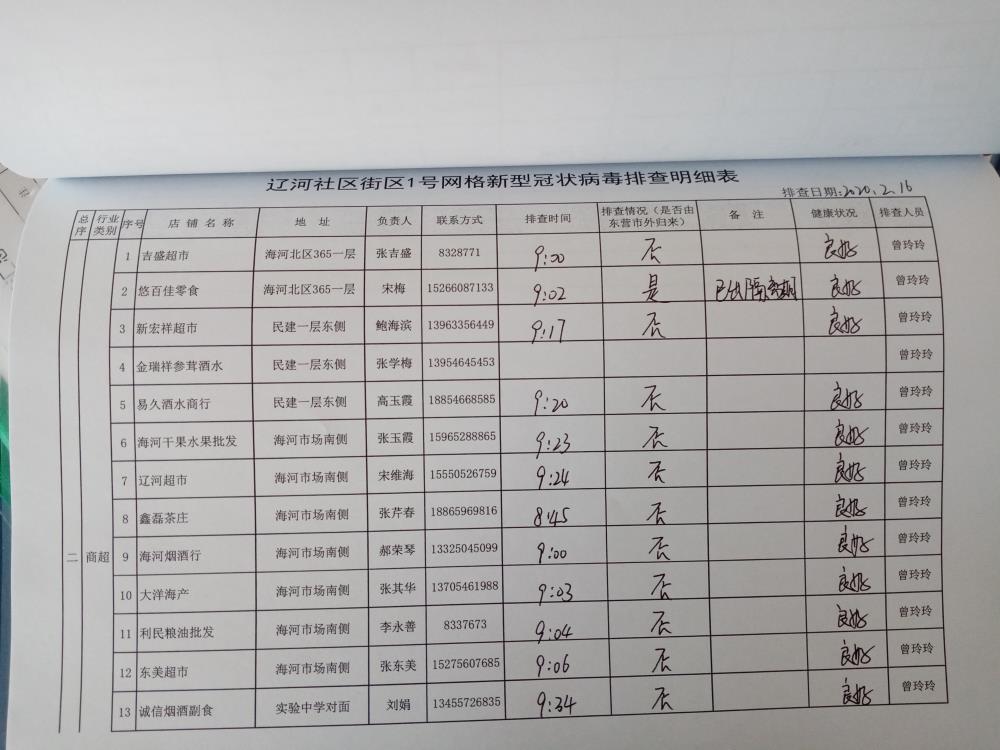 辽河社区街区1号网格新型冠状病毒排查明细表
排查日期:2020.2.16
总序 行业类别 序号 店铺名称 地址 负责人 联系方式 排查时间 排查情况（是否由东营市外归来） 备注 健康状况 排查人员
二 商超
1 吉盛超市 海河北区365一层 张吉盛 8328771 9:00 否 良好 曾玲玲
2 悠百佳零食 海河北区365一层 宋梅 15266087133 9:02 是 已出隔离期 良好 曾玲玲
3 新宏祥超市 民建一层东侧 鲍海滨 13963356449 9:17 否 良好 曾玲玲
4 金瑞祥参茸酒水 民建一层东侧 张学梅 13954645453 曾玲玲
5 易久酒水商行 民建一层东侧 高玉霞 18854668585 9:20 否 良好 曾玲玲
6 海河干果水果批发 海河市场南侧 张玉霞 15965288865 9:23 否 良好 曾玲玲
7 辽河超市 海河市场南侧 宋维海 15550526759 9:24 否 良好 曾玲玲
8 鑫磊茶庄 海河市场南侧 张芹春 18865969816 8:45 否 良好 曾玲玲
9 海河烟酒行 海河市场南侧 郝荣琴 13325045099 9:00 否 良好 曾玲玲
10 大洋海产 海河市场南侧 张其华 13705461988 9:03 否 良好 曾玲玲
11 利民粮油批发 海河市场南侧 李永善 8337673 9:04 否 良好 曾玲玲
12 东美超市 海河市场南侧 张东美 15275607685 9:06 否 良好 曾玲玲
13 诚信烟酒副食 实验中学对面 刘娟 13455726835 9:34 否 良好 曾玲玲